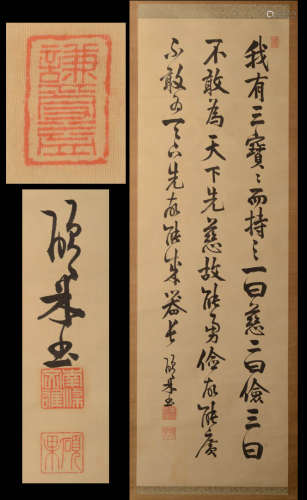 我有三寶〻而持之一曰慈二曰儉三曰
不敢為天下先慈故能勇儉故能廣
不敢為天下先故能成器長
書
書